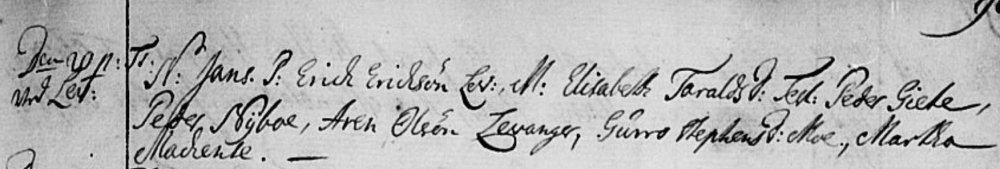 Den 29 9: Ts:
ved Lev:
N: Jans. P: Erich Erichsön Lev:, M: Elisabeth Taralds D: Test: Peder Giebe,
Peder Nÿboe, Aren Olsön Levanger, Gurro Stephens D: Moe., Martha
Machente. —